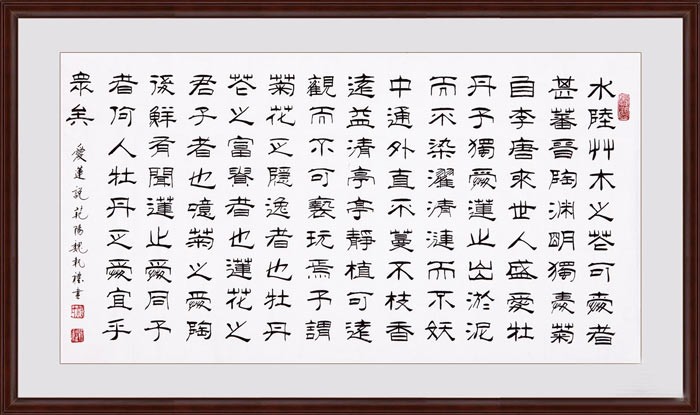 水陸艸木之花可愛者
甚蕃晉陶淵明獨愛菊
自李唐來世人盛愛牡
丹予獨愛蓮之出淤泥
而不染濯清漣而不妖
中通外直不蔓不枝香
遠益清亭亭靜植可遠
觀而不可褻玩焉予謂
菊花之隱逸者也牡丹
花之富貴者也蓮花之
君子者也噫菊之愛陶
後鮮有聞蓮之愛同予
者何人牡丹之愛宜乎
眾矣
愛蓮說范陽魏書